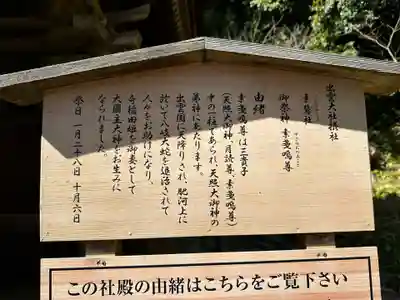 出雲大社摂社
素鵞社
御祭神 素戔嗚尊
由緒
素戔嗚尊は三貴子
(天照大御神、月読尊、素戔嗚尊)
中の一柱であられ、天照大御神の
弟神にあたります。
出雲国に天降りされ、肥河上に
於いて八岐大蛇を退治されて
人々をお助けになり、
奇稲田姫を御妻として
大國主大神をお生みに
なられました。
祭日 一月二十八日 十月六日
この社殿の由緒はこちらをご覧下さい